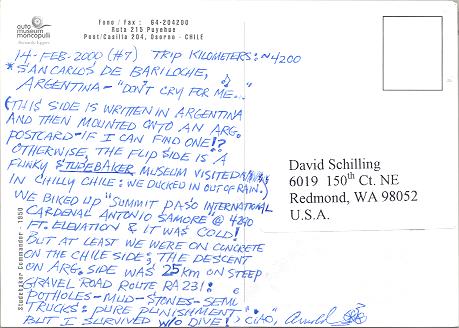 auto
museum
moncopulli
Bernardo Eggers
Fono / Fax : 64-204200
Ruta 215 Puyehue
Post/Casilla 204, Osorno - CHILE
14-FEB-2000 (#7) TRIP KILOMETERS: ~4200
* SAN CARLOS DE BARILOCHE,
ARGENTINA - "DON'T CRY FOR ME..."
(THIS SIDE IS WRITTEN IN ARGENTINA
AND THEN MOUNTED ONTO AN ARG.
POSTCARD - IF I CAN FIND ONE!?
OTHERWISE, THE FLIP SIDE IS A
FUNKY STUDEBAKER MUSEUM VISITED
IN CHILLY CHILE: WE DUCKED IN OUT OF RAIN.)
WE BIKED UP "SUMMIT PASO INTERNATIONAL
CARDENAL ANTONIO SAMORE" @ 4290
FT. ELEVATION & IT WAS COLD!
BUT AT LEAST WE WERE ON CONCRETE
ON THE CHILE SIDE; THE DESCENT
ON ARG. SIDE WAS 25 km ON STEEP
GRAVEL ROAD ROUTE RA 231:
POTHOLES - MUD - STONES - SEMI
TRUCKS: PURE PUNISHMENT -
BUT I SURVIVED W/O DIVE! > CIAO,
Studebaker Commander - 1950
David Schilling
6019 150th Ct. NE
Redmond, WA 98052
U.S.A.